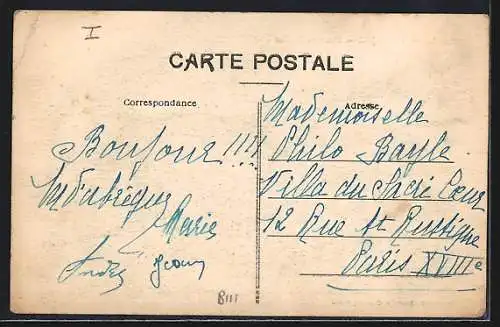 I
CARTE POSTALE
Correspondance
Adresse
Bonjour !!!!
Marie
André Jean
Mademoiselle
Philo Bayle
Villa du Sacré Cœur
12 Rue St Rustique
Paris XVIIIe